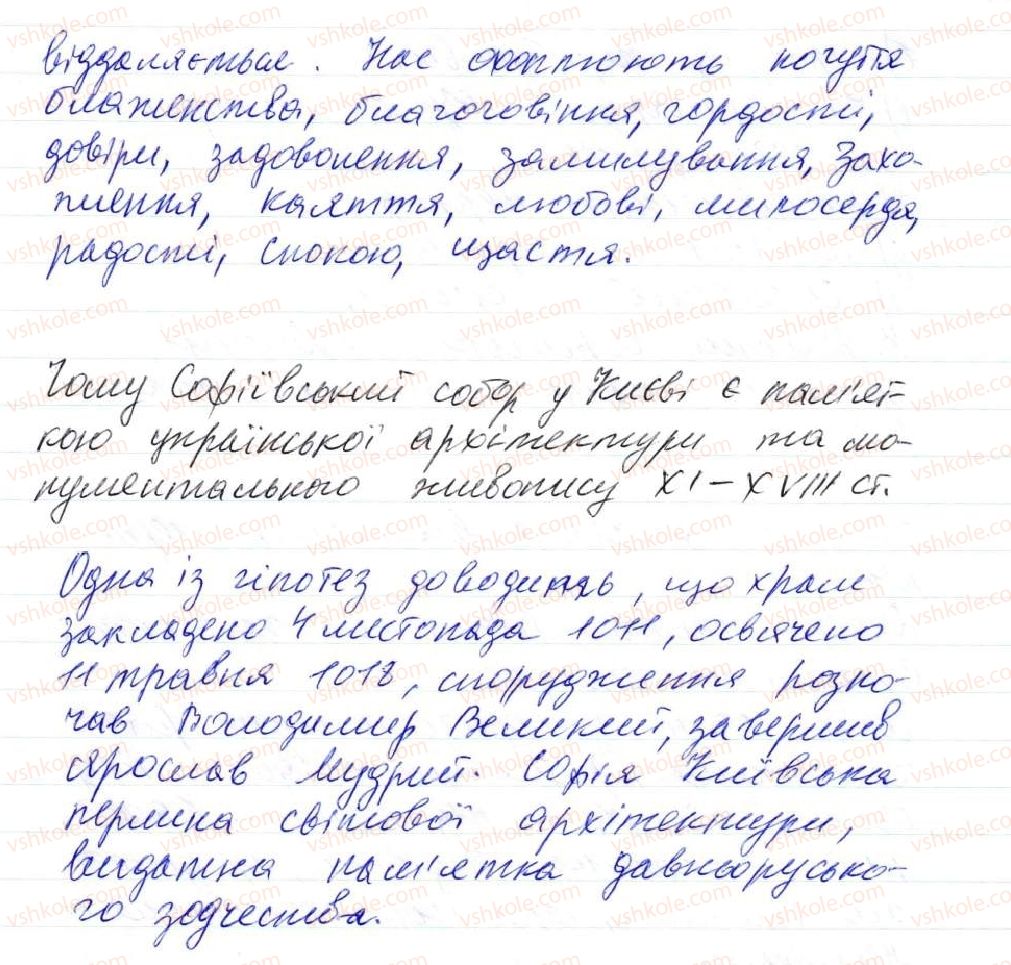 віддаляється. Нас охоплюють почуття
блаженства, благоговіння, гордості,
довіри, задоволення, замилування, захо-
плення, каяття, любові, милосердя,
радості, спокою, щастя.
Чому Софіївський собор у Києві є пам'ят-
кою української архітектури та мо-
нументального живопису XI-XVIII ст.
Одна із гіпотез доводить, що храм
закладено 4 листопада 1011, освячено
11 травня 1018, спорудження розпо-
чав Володимир Великий, завершив
Ярослав Мудрий. Софія Київська
перлина світової архітектури,
видатна пам'ятка давньорусько-
го зодчества.
vshkole.com